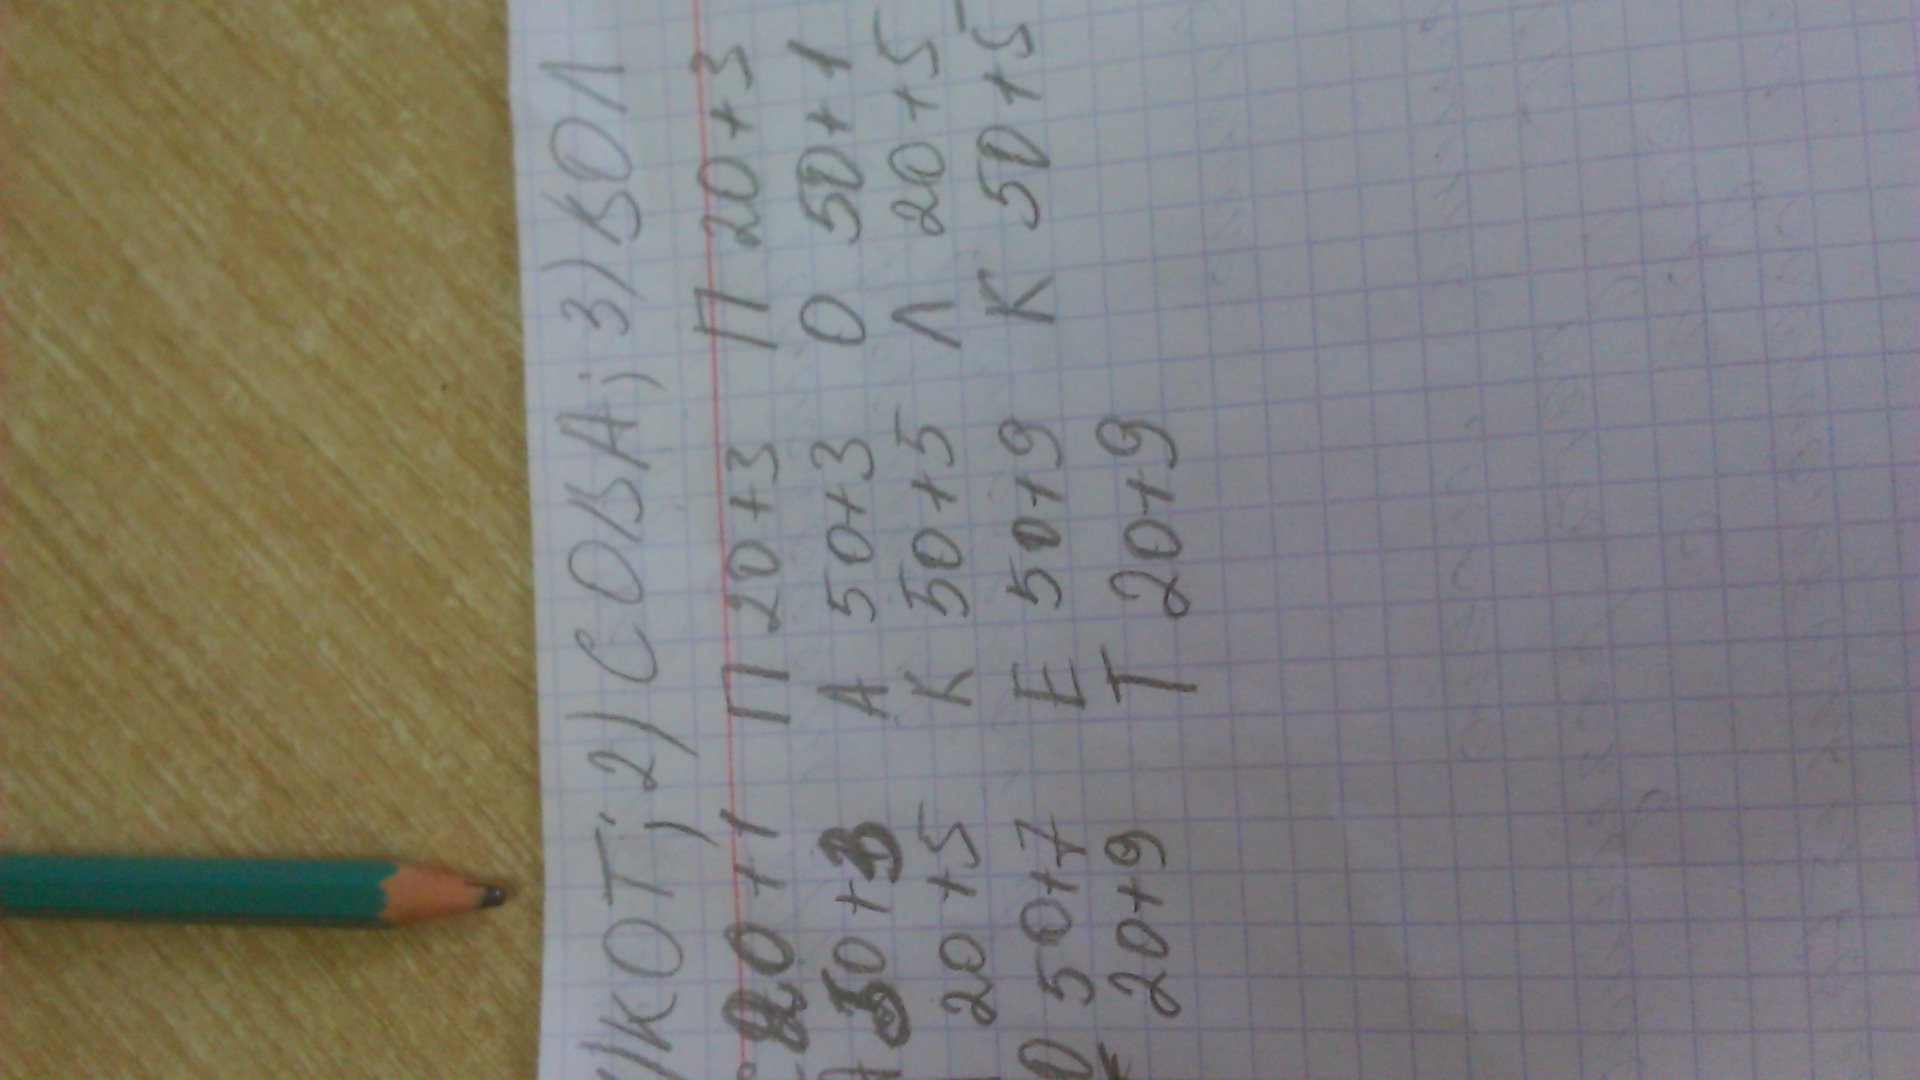 1) КОТ; 2) СОВА; 3) ВОЛ
20+1 П 20+3 П 20+3
А 50+3 А 50+3 О 50+1
20+5 К 50+5 Л 20+5
О 50+7 Е 50+9 К 50+5
20+9 Т 20+9